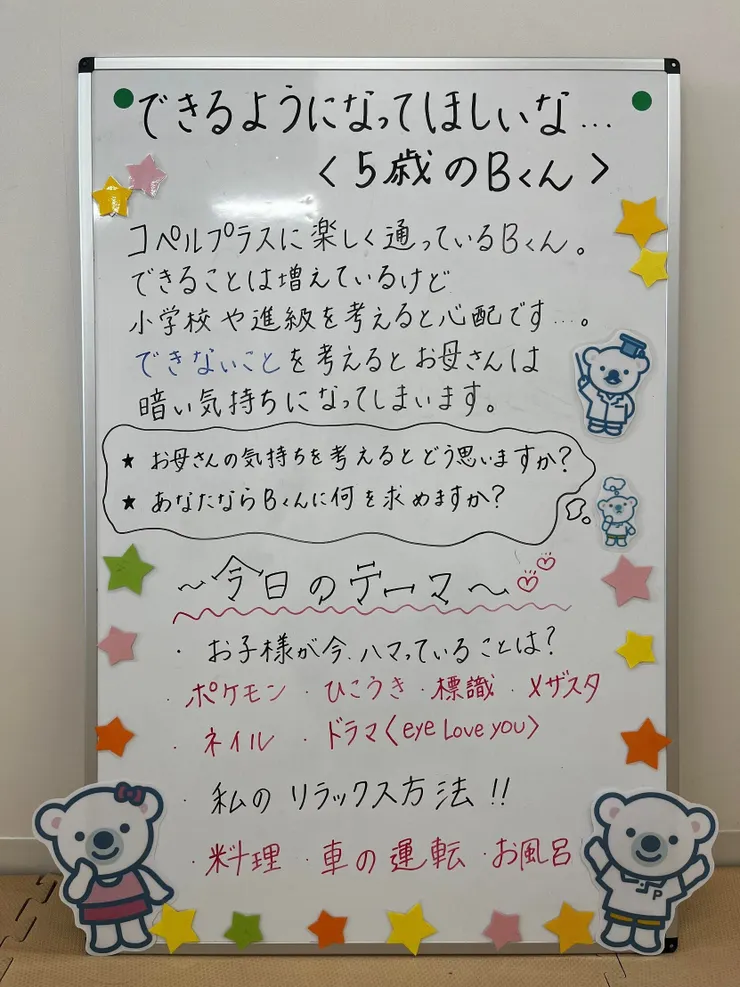 できるようになってほしいな…
〈5歳のBくん〉
コペルプラスに楽しく通っているBくん。
できることは増えているけど
小学校や進級を考えると心配です…。
できないことを考えるとお母さんは
暗い気持ちになってしまいます。
★ お母さんの気持ちを考えるとどう思いますか?
★ あなたならBくんに何を求めますか?
~今日のテーマ~
・お子様が今、ハマっていることは?
・ポケモン ・ひこうき ・標識 ・メザスタ
・ネイル ・ドラマ〈eye Love you〉
・私のリラックス方法!!
・料理 ・車の運転 ・お風呂
P